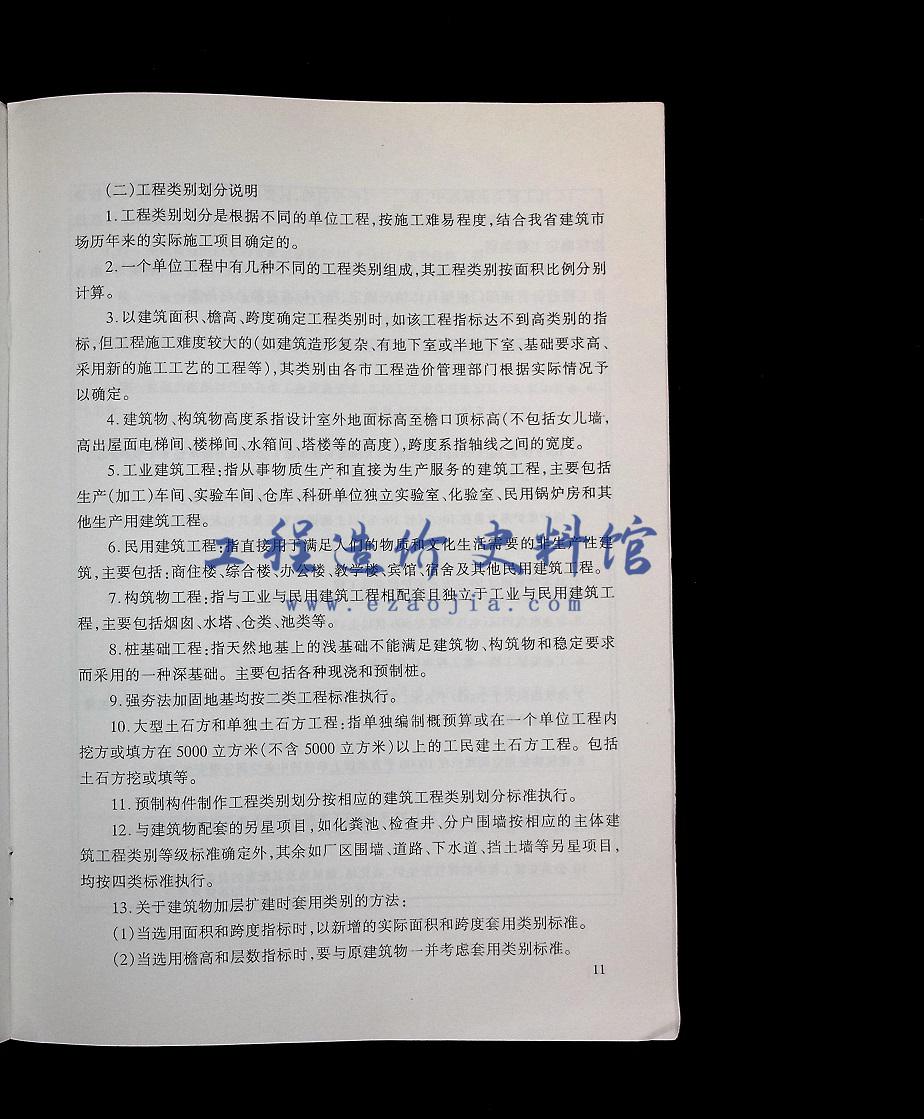 (二)工程类别划分说明
1.工程类别划分是根据不同的单位工程,按施工难易程度,结合我省建筑市
场历年来的实际施工项目确定的。
2.一个单位工程中有几种不同的工程类别组成,其工程类别按面积比例分别
计算。
3.以建筑面积、檐高、跨度确定工程类别时,如该工程指标达不到高类别的指
标,但工程施工难度较大的(如建筑造形复杂、有地下室或半地下室、基础要求高、
采用新的施工工艺的工程等),其类别由各市工程造价管理部门根据实际情况予
以确定。
4.建筑物、构筑物高度系指设计室外地面标高至檐口顶标高(不包括女儿墙,
高出屋面电梯间、楼梯间、水箱间、塔楼等的高度),跨度系指轴线之间的宽度。
5.工业建筑工程:指从事物质生产和直接为生产服务的建筑工程,主要包括
生产(加工)车间、实验车间、仓库、科研单位独立实验室、化验室、民用锅炉房和其
他生产用建筑工程。
6.民用建筑工程:指直接用于满足人们的物质和文化生活需要的非生产性建
筑,主要包括:商住楼、综合楼、办公楼、教学楼、宾馆、宿舍及其他民用建筑工程。
工程造价史料馆
7.构筑物工程:指与工业与民用建筑工程相配套且独立于工业与民用建筑工
www.ezaojia.com
程,主要包括烟囱、水塔、仓类、池类等。
8.桩基础工程:指天然地基上的浅基础不能满足建筑物、构筑物和稳定要求
而采用的一种深基础。主要包括各种现浇和预制桩。
9.强夯法加固地基均按二类工程标准执行。
10.大型土石方和单独土石方工程:指单独编制概预算或在一个单位工程内
挖方或填方在5000立方米(不含5000立方米)以上的工民建土石方工程。包括
土石方挖或填等。
11.预制构件制作工程类别划分按相应的建筑工程类别划分标准执行。
12.与建筑物配套的另星项目,如化粪池、检查井、分户围墙按相应的主体建
筑工程类别等级标准确定外,其余如厂区围墙、道路、下水道、挡土墙等另星项目,
均按四类标准执行。
13.关于建筑物加层扩建时套用类别的方法:
(1)当选用面积和跨度指标时,以新增的实际面积和跨度套用类别标准。
(2)当选用檐高和层数指标时,要与原建筑物一并考虑套用类别标准。
11